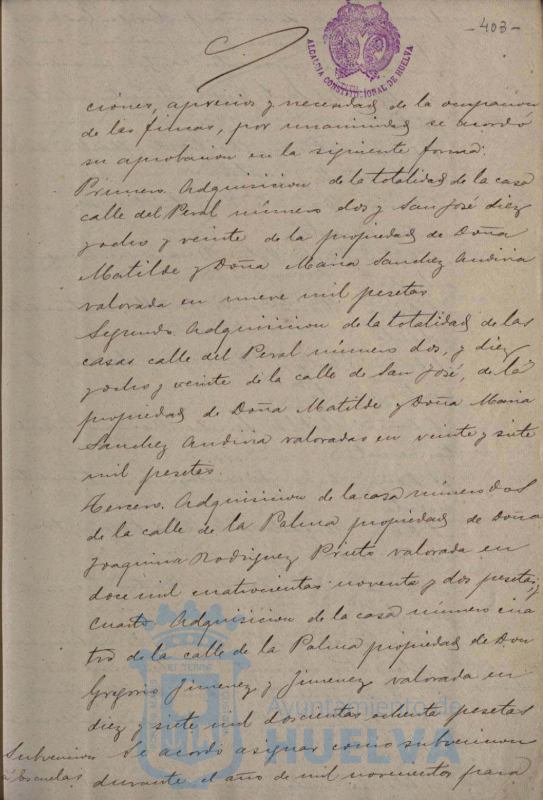 -403-
ALCALDIA CONSTITUCIONAL DE HUELVA
ciones, aprecios y necesidad de la ocupacion
de las fincas, por unanimidad se acordó
su aprobacion en la siguiente forma:
Primero. Adquisicion de la totalidad de la casa
calle del Peral número dos y San José diez
y ocho y veinte de la propiedad de Doña
Matilde y Doña Maria Sanchez
valorada en nueve mil pesetas
Segundo. Adquisicion de la totalidad de las
casas calle del Peral número dos, y diez
y ocho y veinte de la calle de San José, de la
propiedad de Doña Matilde y Doña Maria
Sanchez valoradas en veinte y siete
mil pesetas.
Tercero. Adquisicion de la casa número dos
de la calle de la Palma propiedad de Doña
Joaquina Rodriguez Prieto valorada en
doce mil cuatrocientas noventa y dos pesetas, y
Cuarto. Adquisicion de la casa número cua
tro de la calle de la Palma propiedad de Don
Gregorio Jimenez y Jimenez valorada en
diez y siete mil doscientas ochenta pesetas
Subvencion Se acordó asignar como subvencion
á Escuelas durante el año de mil novecientos para
Ayuntamiento de
HUELVA